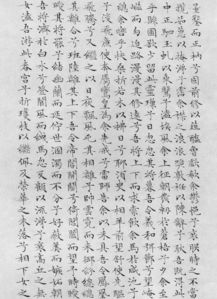 量鑿而正枘兮固前脩以菹醢曾歔欷余鬱悒兮哀朕時之不當
攬茹蕙以掩涕兮霑余襟之浪浪跪敷衽以陳辭兮耿吾既得此
中正駟玉虬以乘鷖兮溘埃風余上征朝發軔於蒼梧兮夕余至
乎縣圃欲少留此靈瑣兮日忽忽其將暮吾令羲和弭節兮望崦
嵫而勿迫路曼曼其脩遠兮吾將上下而求索飲余馬於咸池兮
總余轡乎扶桑折若木以拂日兮聊逍遙以相羊前望舒使先驅
兮後飛廉使奔屬鸞皇為余先戒兮雷師告余以未具吾令鳳鳥
飛騰兮又繼之以日夜飄風屯其相離兮帥雲霓而來御紛總總
其離合兮斑陸離其上下吾令帝閽開關兮倚閶闔而望予時曖
曖其將罷兮結幽蘭而延佇世溷濁而不分兮好蔽美而嫉妒朝
吾將濟於白水兮登閬風而緤馬忽反顧以流涕兮哀高丘之無
女溘吾遊此春宮兮折瓊枝以繼佩及榮華之未落兮相下女之